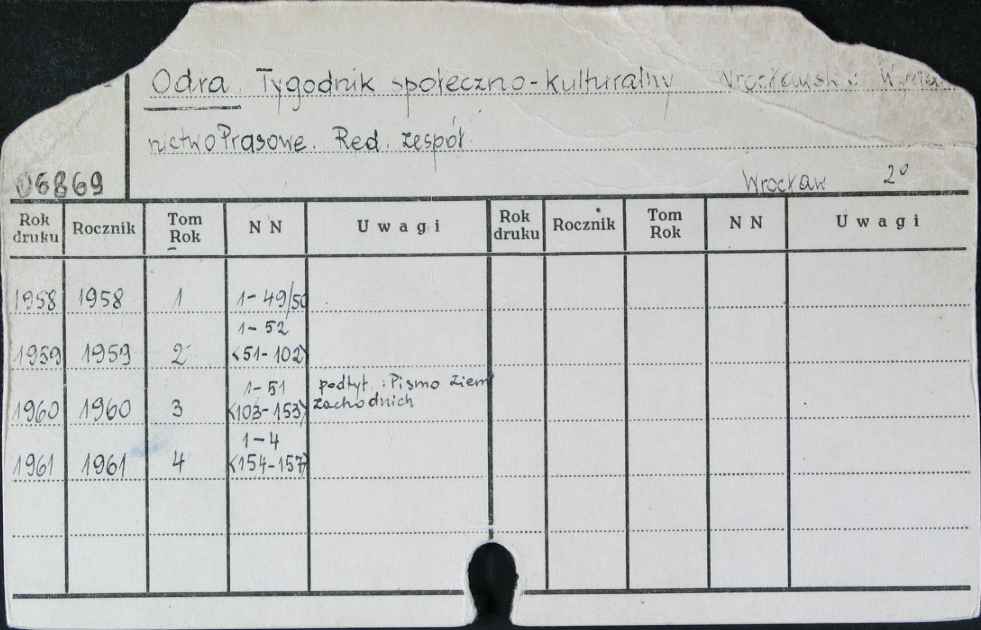 Odra. Tygodnik społeczno-kulturalny
nictwo Prasowe. Red. zespół
06869
Wrocław 2°
Rok druku Rocznik Tom Rok N N Uwagi Rok druku Rocznik Tom Rok N N Uwagi
1958 1958 1 1-49/50
1-52
1959 1959 2 <51-102>
1-51 podtyt.: Pismo ziem
1960 1960 3 <103-153> zachodnich
1-4
1961 1961 4 <154-157>